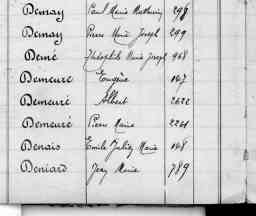 Demay Paul Marie Mathurin 298
Demay Pierre Marie Joseph 299
Demé Théophile Marie Joseph 968
Demeuré Eugène 107
Demeuré Albert 2622
Demeuré Pierre Marie 2241
Denais Emile Julien Marie 108
Deniard Jean Marie 789